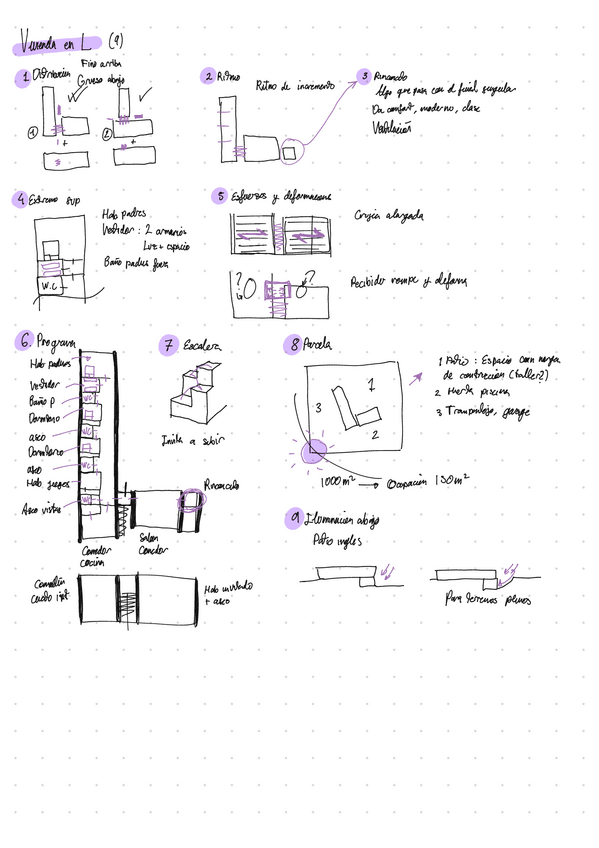 Vivienda en L (9)
1 Distribucion
Fino arriba
Grueso abajo
1
2
+
+
2 Ritmo
Ritmo de incremento
3 Rincando
Algo que pasa con el final
Da confort, moderno, clase
Ventilación
4 Extremo sup
Hab padres
Vestidor : 2 armarios
Luz + espacio
Baño padres fuera
W.C
5 Esfuerzos y deformaciones
Crujia alargada
? ?
Recibidor rompe y deforma
6. Programa
Hab padres
Vestidor
Baño P
Dormitorio
aseo
Dormitorio
aseo
Hab juegos
Aseo visitas
WC
WC
WC
WC
Rinconada
Comedor
cocina
Salon
Comedor
Cuarto inst
Hab invitado
+ aseo
7 Escalera
Invita a subir
8 Parcela
1
2
3
1 Patio : Espacio con
de construccion (taller?)
2 Huerta piscina
3 garage
1000 m² → Ocupación 150 m²
9 Iluminacion abajo
Patio ingles
Para terrenos planos